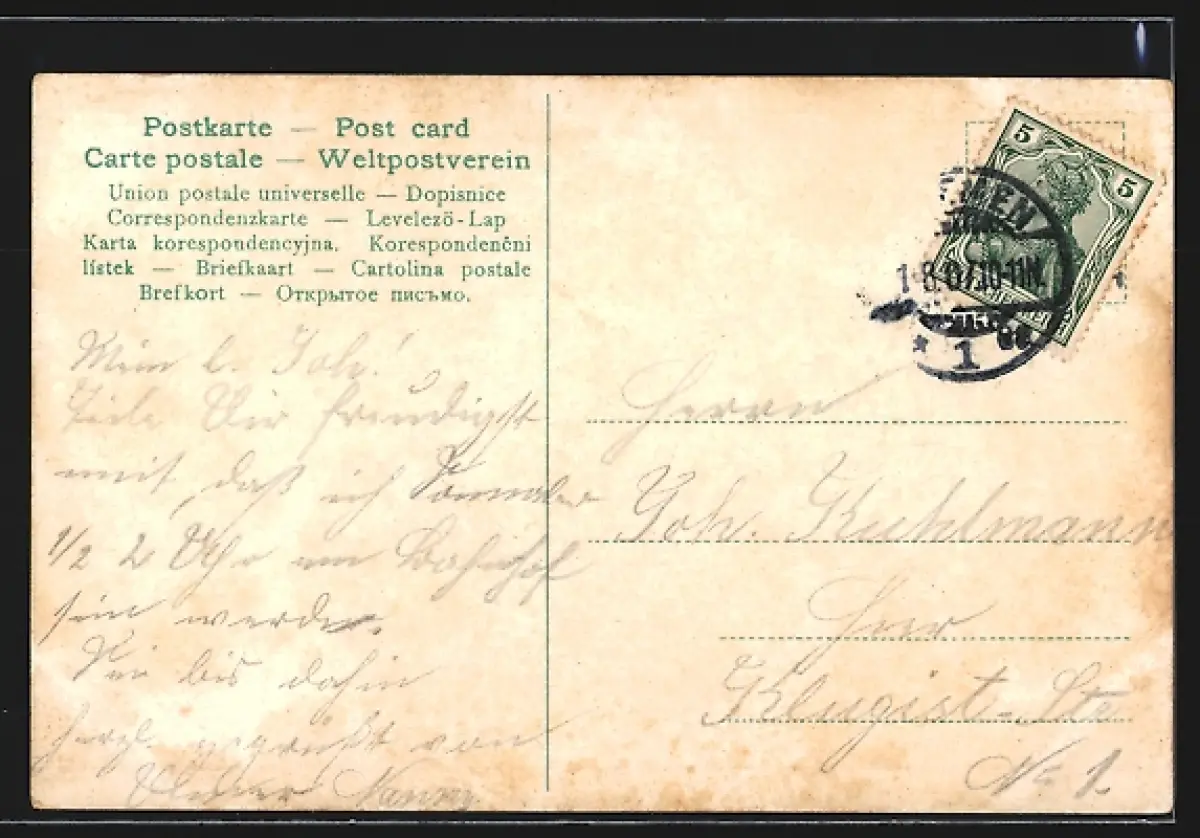 Postkarte — Post card
Carte postale — Weltpostverein
Union postale universelle — Dopisnice
Correspondenzkarte — Levelezö-Lap
Karta korespondencyjna. Korespondenčni
lístek — Briefkaart — Cartolina postale
Brefkort — Открытое письмо.
Mein l. Joh.!
Teile Dir freudigst
mit, daß ich
1/2 2 Uhr am Bahnhof
sein werde.
Sei bis dahin
herzl. gegrüßt von
Nanny
5
5
MEN
1.8.07.10-11N.
* 1
Herrn
Joh. Kuhlmann
Hier
Klugist-Str
No 1.